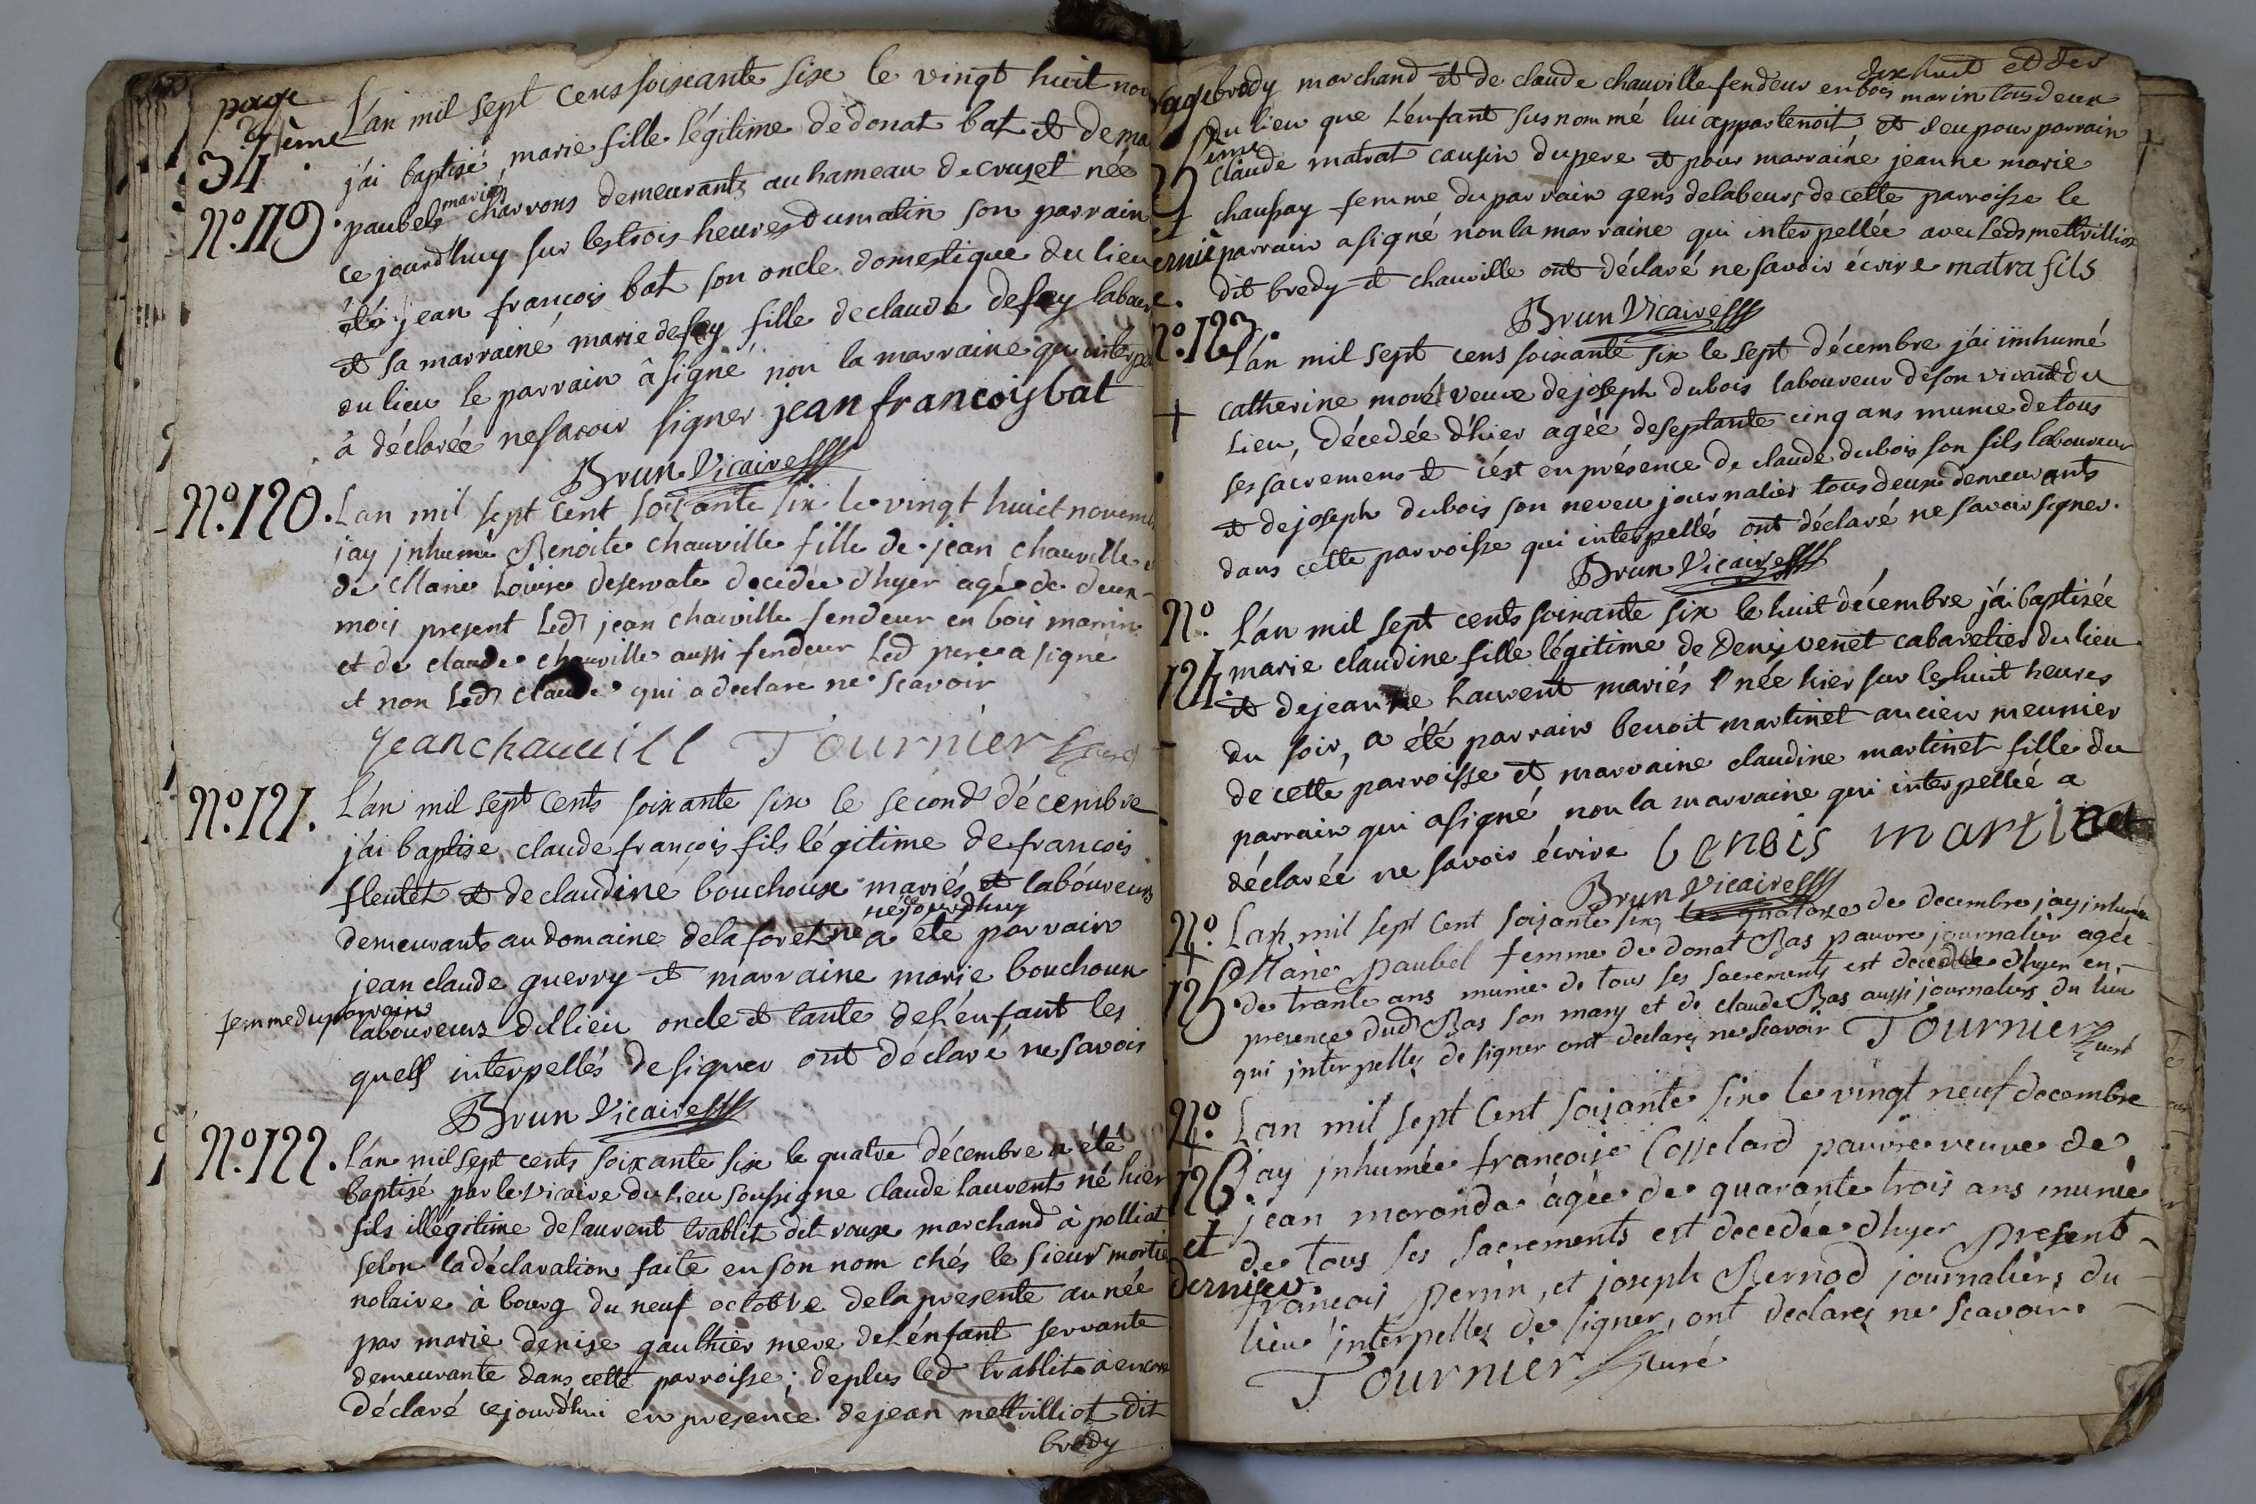 page
34 ème
L'an mil sept cens soixante six le vingt huit nov
j'ai baptisé marie fille légitime de donat bat et de ma
N.º 119. paubel mariés charrons demeurants au hameau de cruzet née
ce jourd'huy sur les trois heures du matin son parrain
été jean françois bat son oncle domestique du lieu
et sa marraine marie defay fille de claude defay labour
du lieu le parrain â signé non la marraine qui interpe
à déclarée ne savoir signer jean francois bat
Brun Vicaire
N.º 120. Lan mil sept Cent soixante six le vingt huict novem
j'ay jnhumé Benoite chauville fille de jean chauville
de Marie Louise deservate decedée d'hyer agée de deux
mois present Led jean chauville fendeur en bois marrin
et de claude chauville aussi fendeur Led pere a signé
et non Led claude qui a declaré ne scavoir
jean chauuill Tournier Curé
N.º 121. L'an mil sept cents soixante six le second décembre
j'ai baptisé claude françois fils légitime de françois
fleutet et de claudine bouchoux mariés et laboureurs
né jourdhuy
demeurants au domaine de la foret a été parrain
jean claude guerry et marraine marie bouchoux
femme du parrain
laboureurs du lieu oncle et tante de l'enfant les
quels interpellés de signer ont déclaré ne savoir
Brun Vicaire
N.º 122. L'an mil sept cents soixante six le quatre décembre a été
baptisé par le vicaire du lieu soussigné claude laurent né hier
fils illégitime de laurent trablit dit roux marchand à polliat
selon la déclaration faite en son nom chés le sieur mortie
notaire à bourg du neuf octobre de la presente année
par marie denise gaulthier mere de l'enfant servante
demeurante dans cette parroisse; de plus led trablit a encore
déclaré ce jourd'hui en presence de jean mettrilliot dit
brody
page brody marchand et de claude chauville fendeur en bois marin tous deux
dix huit et der
du lieu que L'enfant susnommé lui appartenoit et a eu pour parrain
35 ème claude matrat cousin du pere et pour marraine jeanne marie
et chaussay femme du parrain gens de labeurs de cette parroisse le
dernière parrain a signé non la marraine qui interpellée avec Leds mettrilliot
dit bredy et chauville ont déclaré ne savoir écrire matra fils
Brun Vicaire
N.º 123. L'an mil sept cens soixante six le sept décembre j'ai inhumé
catherine morel veuve de joseph dubois laboureur de son vivant du
Lieu, décedée d'hier agée de septante cinq ans munie de tous
ses sacremens et c'est en présence de claude dubois son fils laboureur
et de joseph dubois son neveu journalier tous deux demeurants
dans cette parroisse qui interpellés ont déclaré ne savoir signer.
Brun Vicaire
N.º L'an mil sept cents soixante six le huit décembre j'ai baptisée
124. marie claudine fille légitime de denis venet cabaretier du lieu
et de jeanne laurent mariés née hier sur les huit heures
du soir, a été parrain benoit martinet ancien meunier
de cette parroisse et marraine claudine martinet fille du
parrain qui a signé non la marraine qui interpellée a
déclarée ne savoir écrire benois martinet
Brun Vicaire
N.º Lan mil sept Cent soixante six, le quatorze de decembre jay jnhumée
125. Marie Paubel femme de donat Bas pauvre journalier agée
de trante ans munie de tous ses sacrements est decedée d'hyer en
presence dud Bas son mary et de claude Bas aussi journaliers du lieu
qui jnterpelles de signer ont declarés ne scavoir Tournier Curé
N.º Lan mil sept Cent soixante six le vingt neuf decembre
126. j'ay jnhumée françoise Cosselard pauvre veuve de
jean moranda âgée de quarante trois ans munie
et de tous ses sacrements est decedée d'hyer present
dernier. françois Perrin, et joseph Bernod journaliers du
lieu interpelles de signer, ont declarés ne scavoir.
Tournier Curé